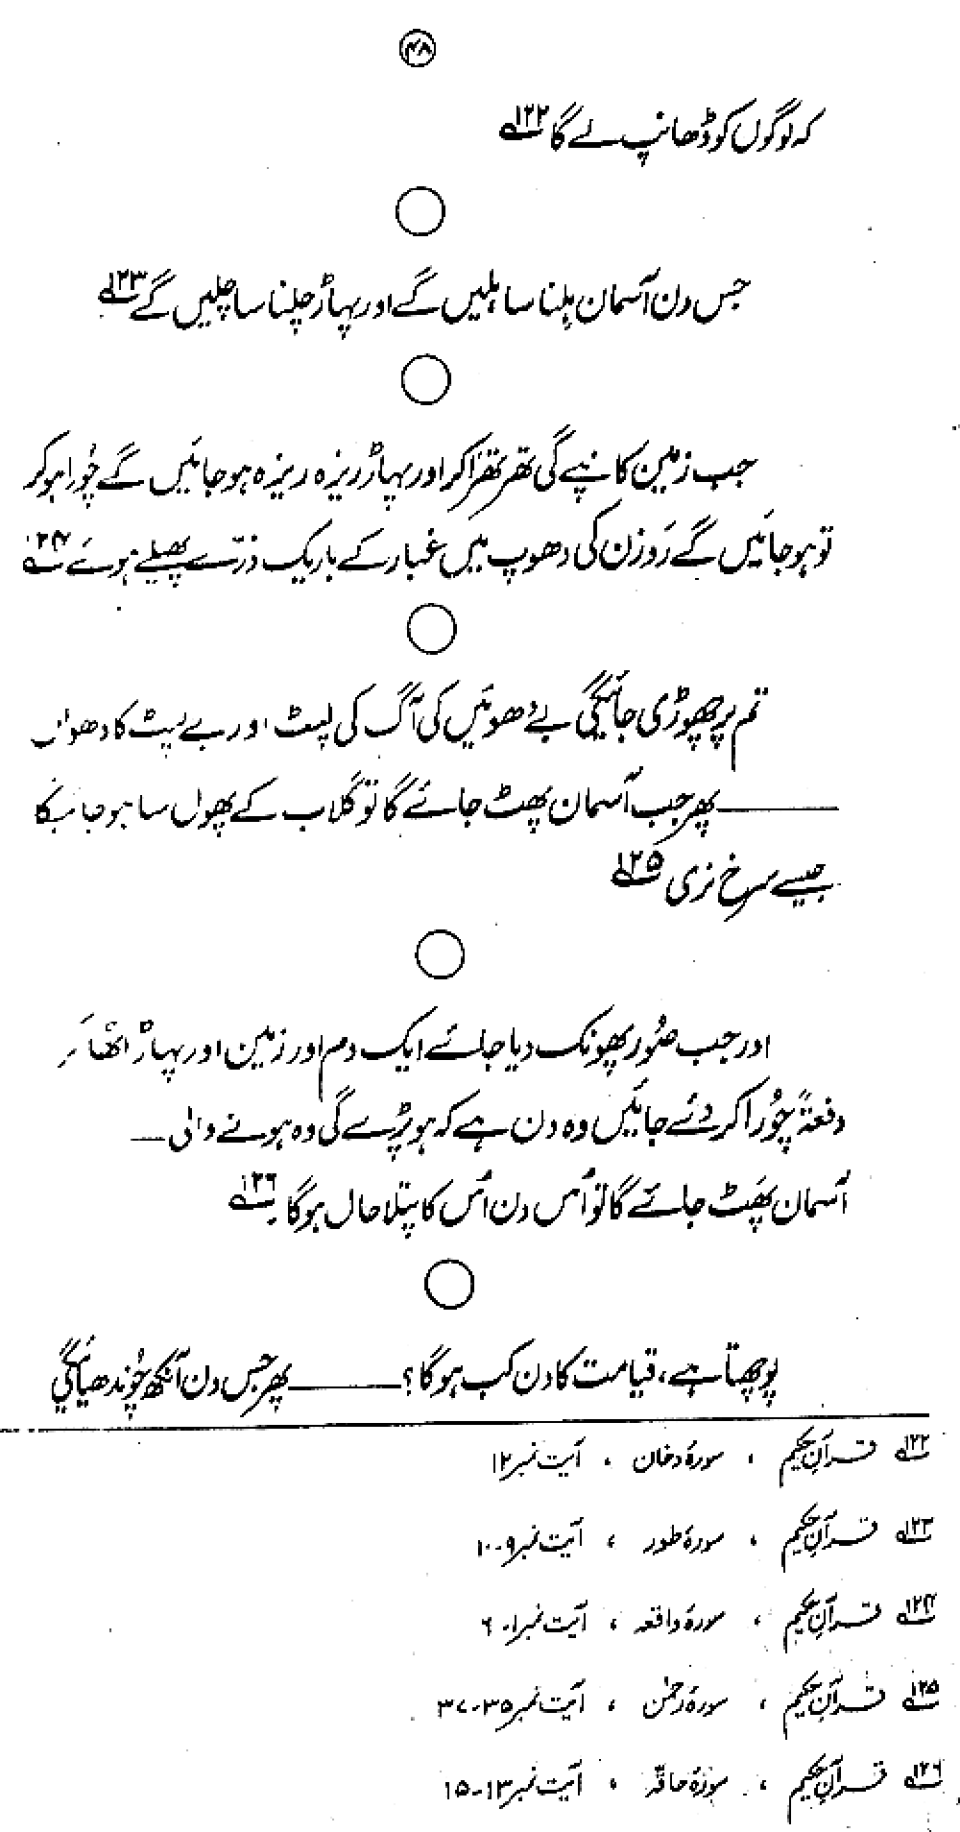 ۴۸
کہ لوگوں کو ڈھانپ لے گا ۱۲۲
جس دن آسمان ہلنا سا ہلیں گے اور پہاڑ چلنا سا چلیں گے ۱۲۳
جب زمین کانپے گی تھر تھرا کر اور پہاڑ ریزہ ریزہ ہو جائیں گے چُورا ہو کر
تو ہو جائیں گے رَوزن کی دھوپ میں غبار کے باریک ذرّے پھیلے ہوئے ۱۲۴
تم پر چھوڑی جائیگی بے دھوئیں کی آگ کی لپٹ اور بے لپٹ کا دھواں
——— پھر جب آسمان پھٹ جائے گا تو گلاب کے پھول سا ہو جائیگا
جیسے سرخ نری ۱۲۵
اور جب صُور پھونک دیا جائے ایک دم اور زمین اور پہاڑ اٹھا کر
دفعۃً چُورا کر دئے جائیں وہ دن ہے کہ ہو پڑے گی وہ ہونے والی —
آسمان پھَٹ جائے گا تو اُس دن اُس کا پتلا حال ہوگا ۱۲۶
پوچھتا ہے، قیامت کا دن کب ہوگا؟ ——— پھر جس دن آنکھ چُوندھیائیگی
۱۲۲ قرآنِ حکیم ، سورۂ دخان ، آیت نمبر ۱۲
۱۲۳ قرآنِ حکیم ، سورۂ طور ، آیت نمبر ۹-۱۰
۱۲۴ قرآنِ حکیم ، سورۂ واقعہ ، آیت نمبر ۱-۶
۱۲۵ قرآنِ حکیم ، سورۂ رحمٰن ، آیت نمبر ۳۵-۳۷
۱۲۶ قرآنِ حکیم ، سورۂ حاقّہ ، آیت نمبر ۱۳-۱۵